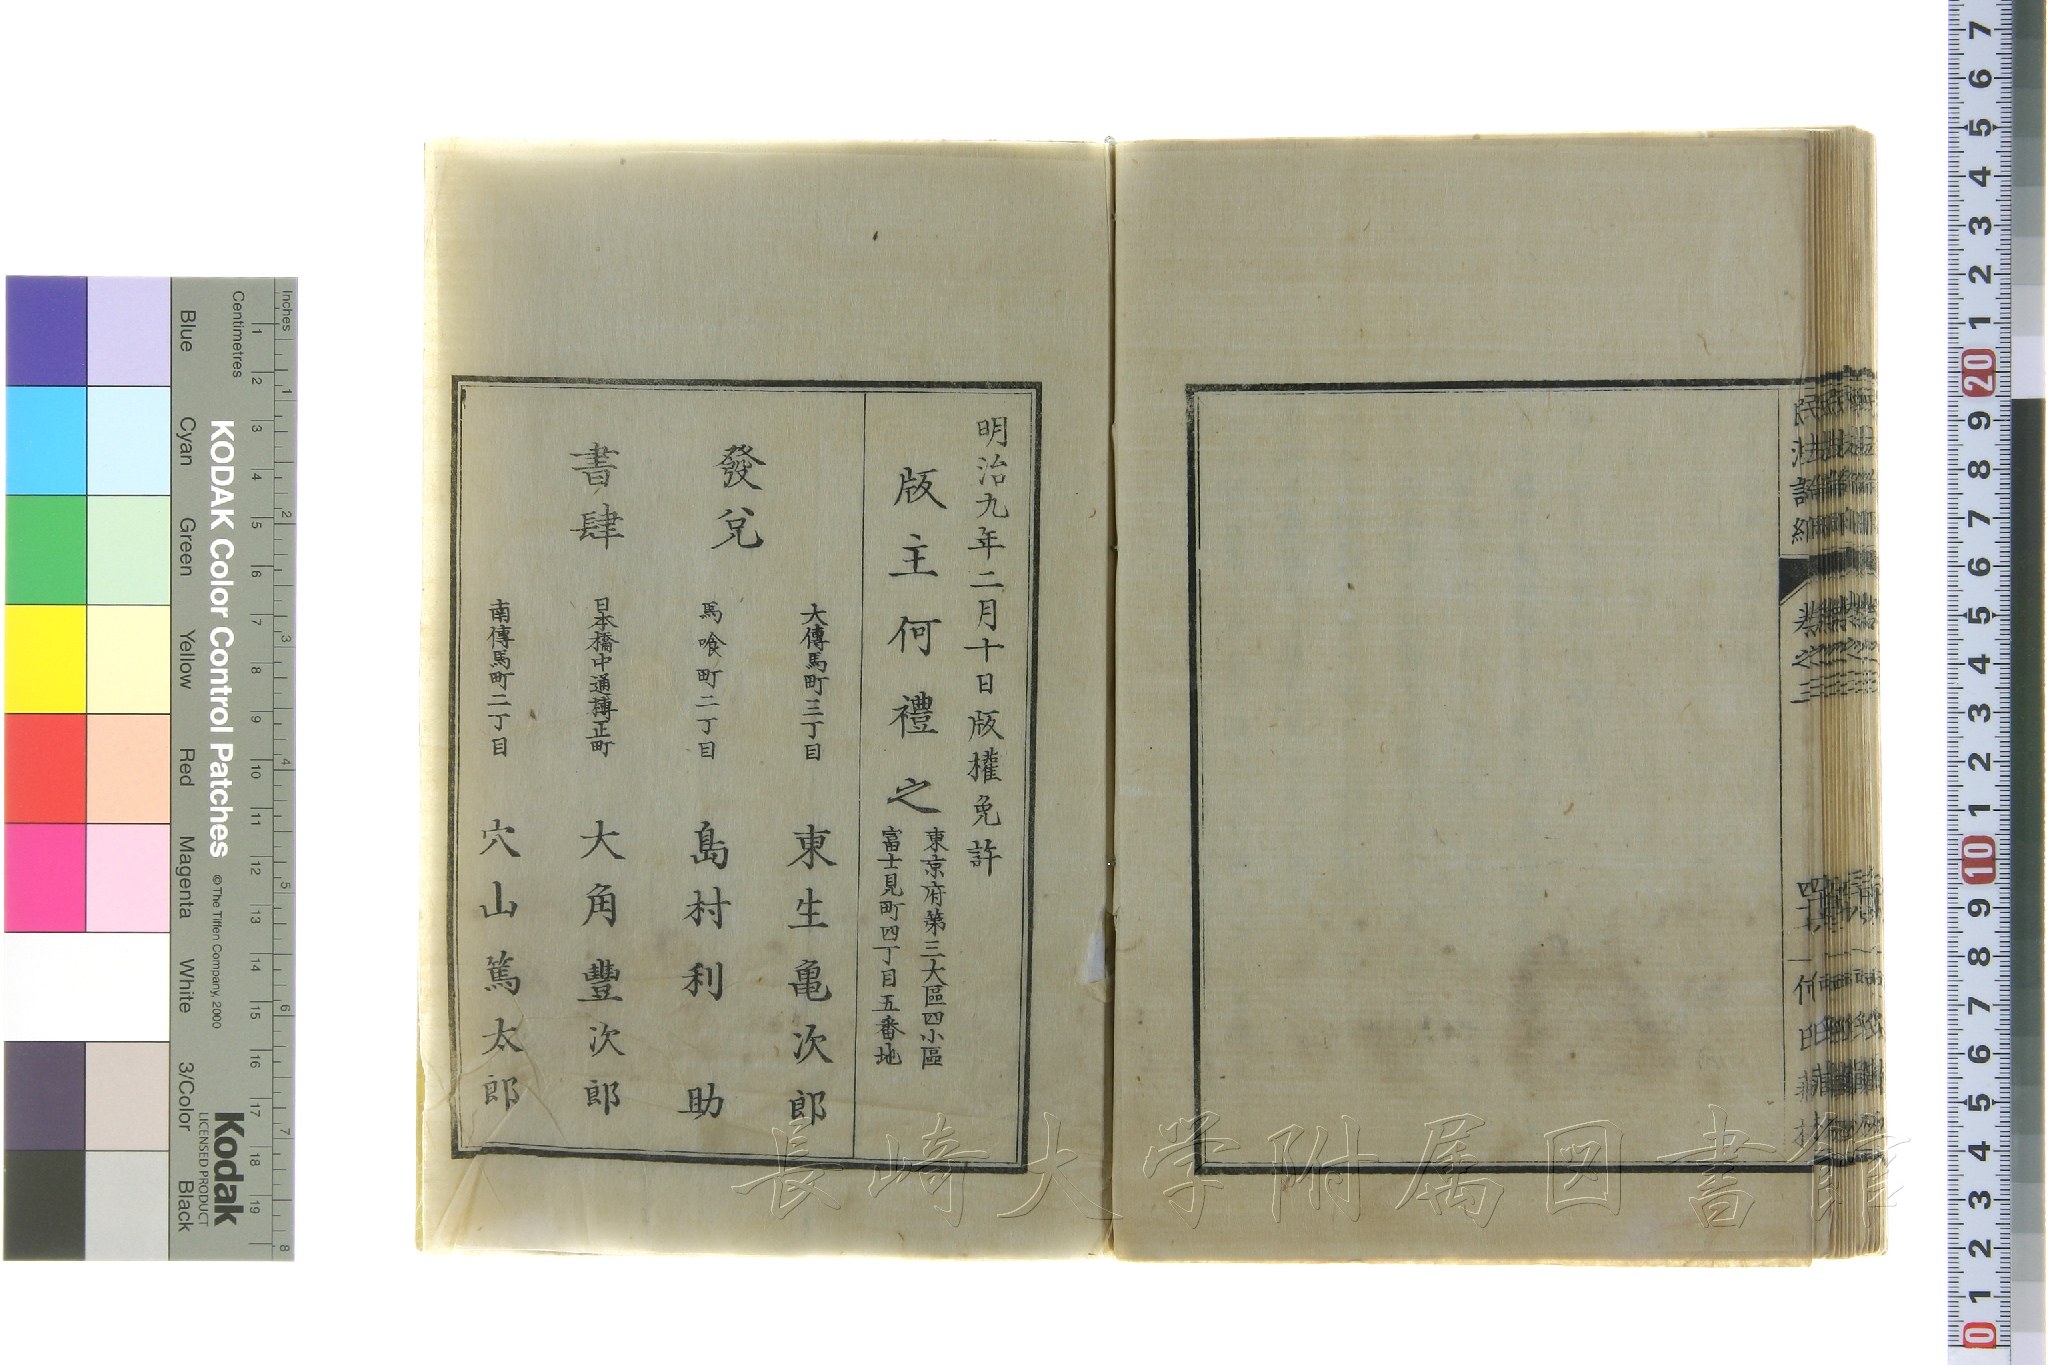 明治九年二月十日版權免許
版主何禮之
東京府第三大區四小區
富士見町四丁目五番地
發兌
書肆
大傳馬町三丁目 東生亀次郎
馬喰町二丁目 島村利助
日本橋中通榑正町 大角豐次郎
南傳馬町二丁目 穴山篤太郎
長崎大学附属図書館
KODAK Color Control Patches
© The Tiffen Company, 2000
Kodak
LICENSED PRODUCT
Inches
Centimetres
Blue
Cyan
Green
Yellow
Red
Magenta
White
3/Color
Black